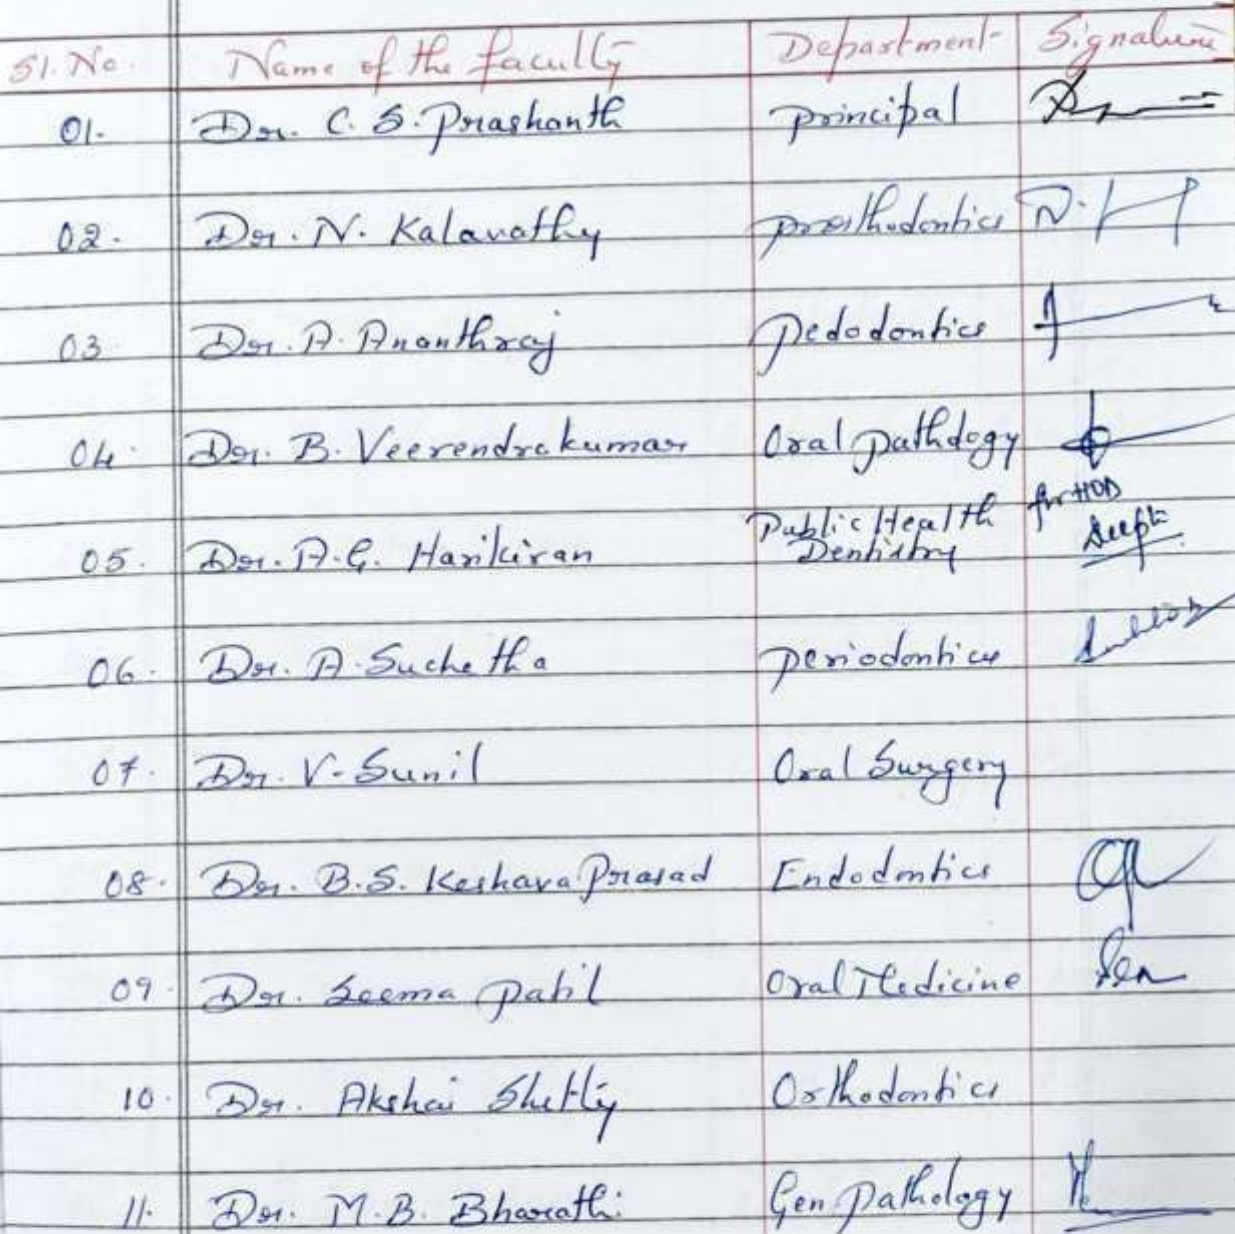 Sl. No. Name of the faculty Department Signature
01. Dr. C. S. Prashanth principal
02. Dr. N. Kalavathy prosthodontics
03 Dr. A. Ananthraj pedodontics
04. Dr. B. Veerendrakumar Oral pathology
05. Dr. A.G. Harikiran Public Health Dentistry for HOD
Deepti
06. Dr. A. Suchetha periodontics
07. Dr. V. Sunil Oral Surgery
08. Dr. B.S. Keshava Prasad Endodontics
09 Dr. Seema patil Oral Medicine
10. Dr. Akshai Shetty Orthodontics
11. Dr. M.B. Bharathi Gen. pathology